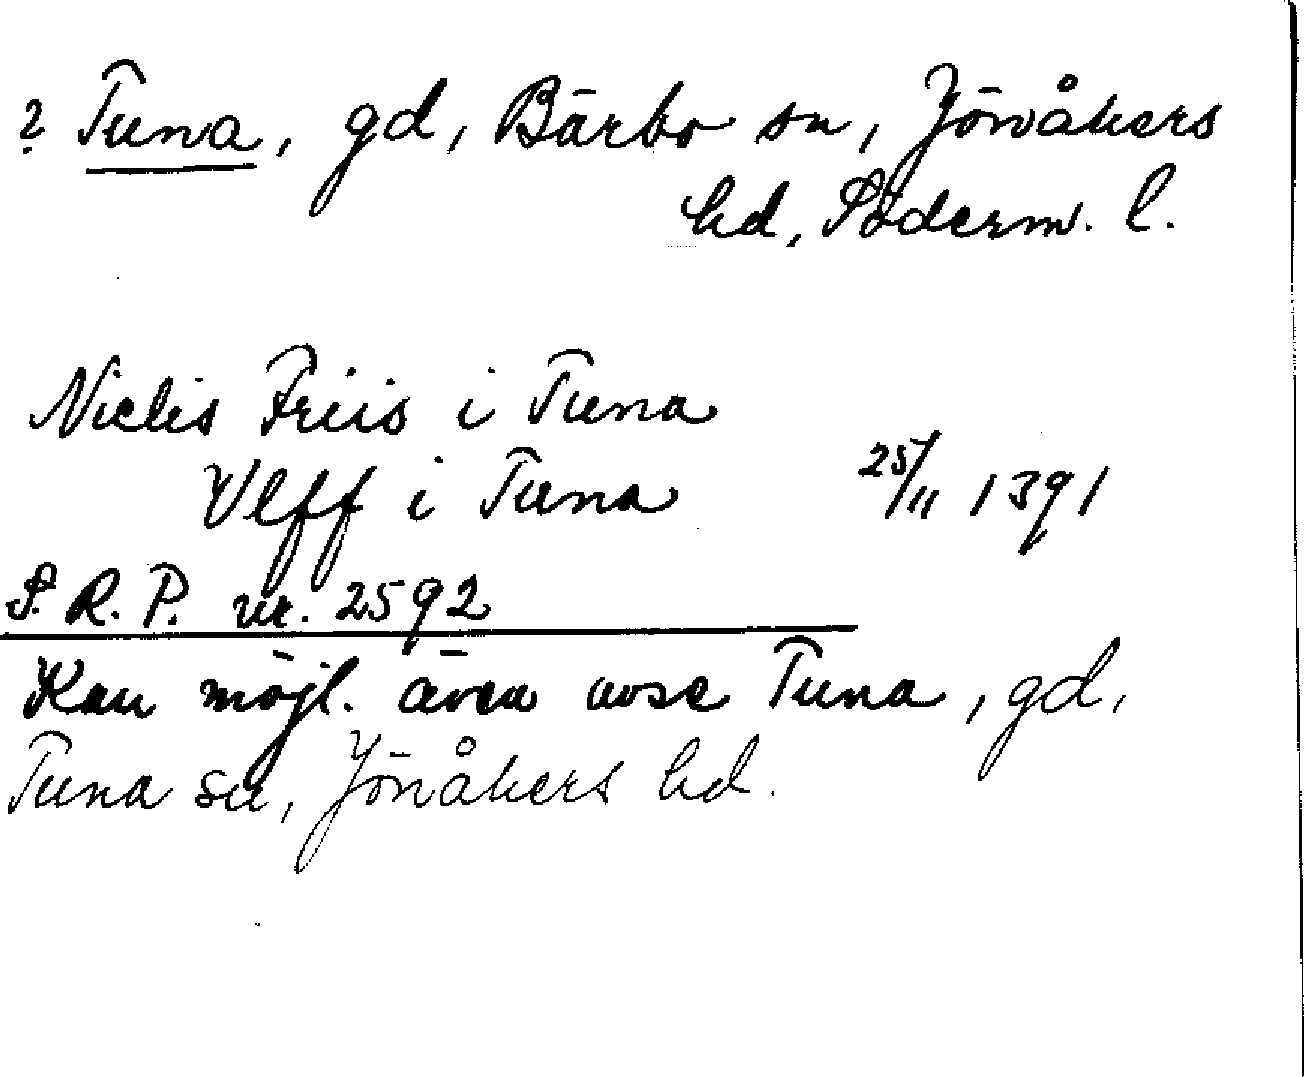 ? Tuna, gd, Bärbo sn, Jönåkers
hd, Söderm. l.
Niclis Friis i Tuna
Vlff i Tuna 25/11 1391
S. R. P. nr. 2592
Kan möjl. även avse Tuna, gd,
Tuna sn, Jönåkers hd.